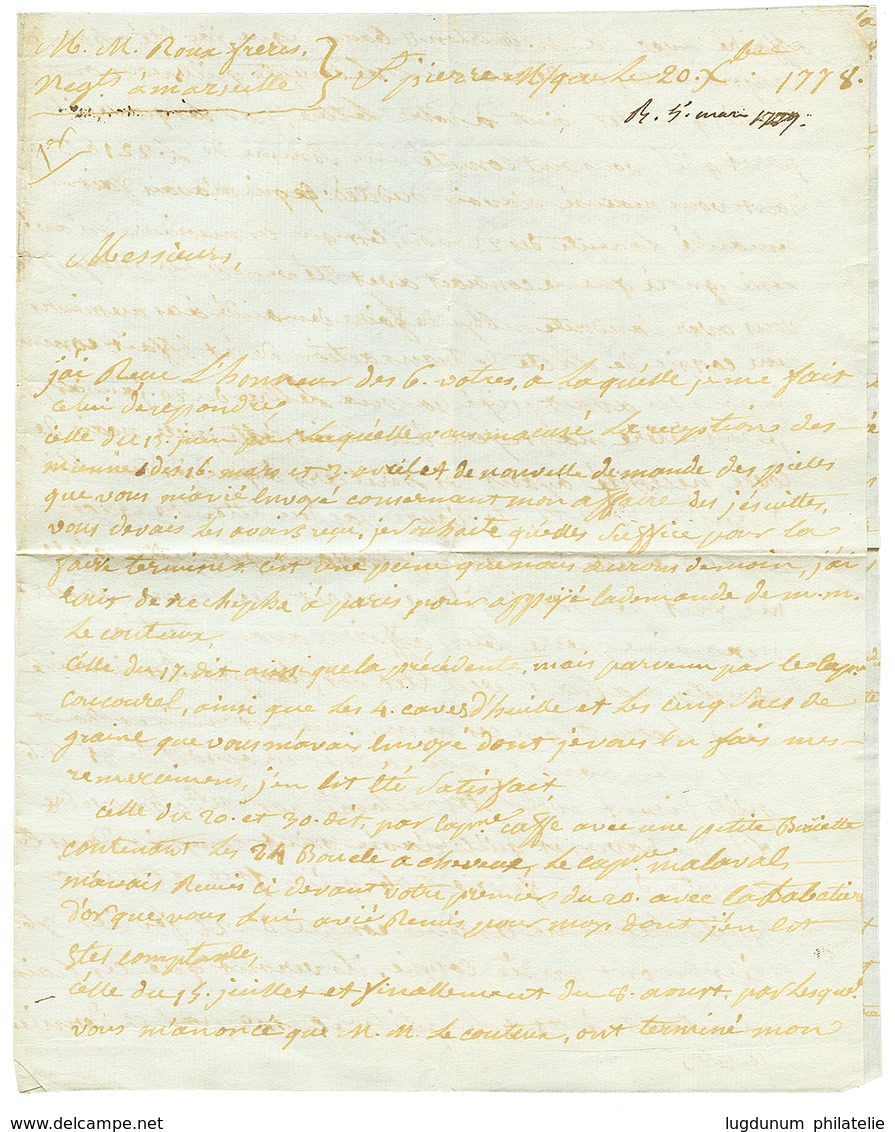 M. M. Roux freres,
Negts. à marseille
St. pierre M/que Le 20. Xbre 1778.
R. 5. mars 1779.
1er
Messieurs,
j'ai Recu L'honneur des 6. votres, à Laquélle je me fait
celui dérépondre,
célle du 15. juin par Laquélle vous m'acusé La reception des
miennes des 16. mars et 2. avril et de nouvelle demande des pieces
que vous m'avié Envoyé consernant mon affaire des jésuittes,
vous devais Les avoir reçu, je souhaite qu'elles Suffice pour la
faire terminer c'est une peine que nous aurons de moin, j'ai
Ecris de rechefhe à paris pour appuyé la demande de m. m.
Le couteux,
Célle du 17. dit ainsi que la précédente, mais parvenu par le Capne
Coucourel, ainsi que Les 4. caves d'huille et Les cinq Sacs de
graine que vous m'avais Envoyé dont je vous En fais mes
remerciemens, j'en Eit été Satisfait
célle du 20. et 30. dit, par Capne caffe avec une petite Boiette
contenant Les 24 Boucle a cheveux, Le capne malaval
m'avais Remis ci devant votre premier du 20. avec la tabatier
d'or que vous Lui avié Remis pour moy dont j'en Eit
Etes comptantes,
célle du 15. juillet et finallement du 8. aoust, par Lesque
vous m'anoncé que M. M. Le couteux, ont terminé mon
www.delcampe.net
lugdunum philatelie